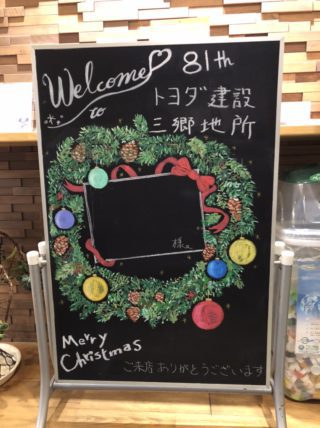 Welcome 81th
to
トヨダ建設
三郷地所
様
Merry
Christmas
ご来店ありがとうございます